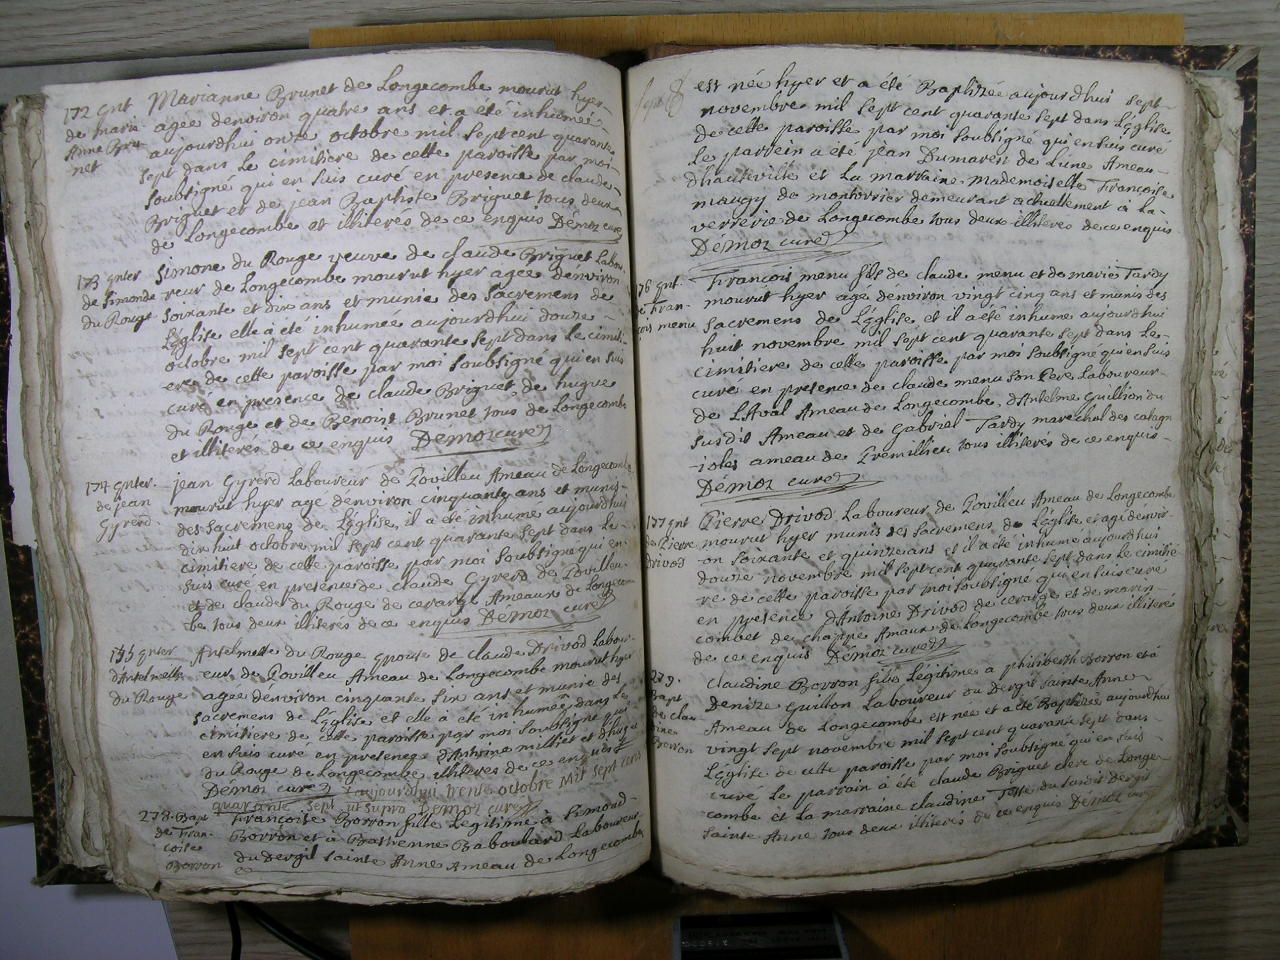 172 Gnt
de maria
Anne Bru-
net
Marianne Brunet de Longecombe mourut hyer
agee denviron quatre ans et a été inhumée
aujourdhui onze octobre mil sept cent quarante
sept dans Le cimitiere de cette paroisse par moi
soubsigné qui en suis curé en presence de claude
Briguet et de jean Baptiste Briguet tous deux
de Longecombe et illiteres de ce enquis Démoz curé
173 gnter
de Simonde
du Rouge
Simone du Rouge veuve de claude Briguet Labou-
reur de Longecombe mourut hyer agee denviron
soixante et dix ans et munie des sacremens de
Léglise elle a été inhumée aujourdhui douze
octobre mil sept cent quarante sept dans Le cimiti-
ere de cette paroisse par moi soubsigné qui en suis
curé en presence de claude Briguet de hugue
du Rouge et de Benoist Brunet tous de Longecombe
et illiterés de ce enquis Démoz curé
174 gnter.
de jean
Gyrerd
jean Gyrerd Laboureur de Povilleu Ameau de Longecombe
mourut hyer age denviron cinquante ans et munis
des sacremens de Léglise, il a été inhume aujourdhui
dix huit octobre mil sept cent quarante sept dans Le
cimitiere de cette paroisse par moi soubsigné qui en
suis curé en presence de claude Gyrerd de Povilleu
et de claude du Rouge de cerarge Ameaux de Longecom-
be tous deux illiterés de ce enquis Démoz curé
175 gnter
d'Antelmette
du Rouge
Antelmette du Rouge epouse de claude Drivod Labour-
eur de Povilleu Ameau de Longecombe mourut hyer
agee denviron cinquante six ans et munie des
sacremens de Léglise et elle a été inhumée dans Le
cimitiere de cette paroisse par moi soubsigné qui
en suis curé en presence d'Antoine milliet et d'hugue
du Rouge de Longecombe illiteres de ce enquis
Démoz curé aujourdhui trente octobre mil sept cent
quarante sept ut supra Démoz curé
278. Bapt
de Fran-
coise
Borron
Francoise Borron fille Legitime à Simond
Borron et à Bastienne Baboulard Laboureur
du Dergil sainte Anne Ameau de Longecombe
est née hyer et a été Baptisée aujourdhui sept
novembre mil sept cent quarante sept dans Léglise
de cette paroisse par moi soubsigné qui en suis curé
Le parrein a été jean Dumarest de Lune Ameau
dhauteville et La marraine Mademoiselle Françoise
maugy de montverrier demeurant actuellement à La
verrerie de Longecombe tous deux illiteres de ce enquis
Démoz curé
76 gnt.
Fran-
cois menu
Francois menu fils de claude menu et de marie Tardy
mourut hyer age denviron vingt cinq ans et munis des
sacremens de Léglise et il a été inhume aujourdhui
huit novembre mil sept cent quarante sept dans Le
cimitiere de cette paroisse par moi soubsigné qui en suis
curé en presence de claude menu son Pere Laboureur
de L'Aval Ameau de Longecombe, d'Antelme Guillion du
susdit Ameau et de Gabriel Tardy marechal des catagn
ioles ameau de Premillieu tous illiterés de ce enquis
Démoz curé
177 gnt
de Pierre
Drivod
Pierre Drivod Laboureur de Povilleu Ameau de Longecombe
mourut hyer munis des sacremens de Léglise et age denvir-
on soixante et quinze ans et il a été inhume aujourdhui
douze novembre mil sept cent quarante sept dans Le cimitie
re de cette paroisse par moi soubsigné qui en suis curé
en presence d'Antoine Drivod de cerarge et de marin
combet de chappe Amaux de Longecombe tous deux illiterés
de ce enquis Démoz curé
279.
Bapt
de clau
dine
Borron
Claudine Borron fille Légitime à philibert Borron et à
Denize Guillon Laboureur du Dergil sainte Anne
Ameau de Longecombe est née et a été Baptisée aujourdhui
vingt sept novembre mil sept cent quarante sept dans
Léglise de cette paroisse par moi soubsigné qui en suis
curé Le parrain a été claude Briguet clerc de Longe-
combe et La marraine claudine du susdit Dergil
sainte Anne tous deux illiteres de ce enquis Démoz curé